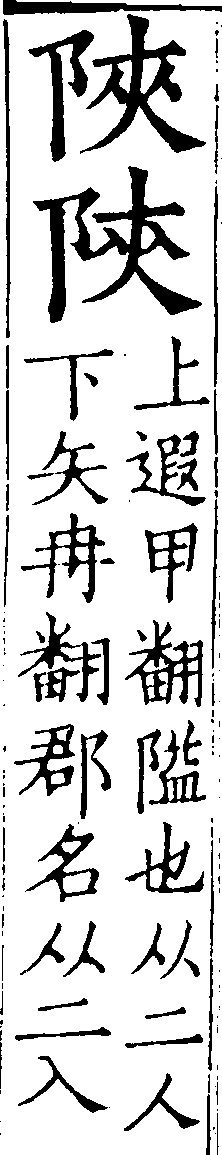 陜陝
上遐甲翻隘也从二人
下矢冉翻郡名从二入